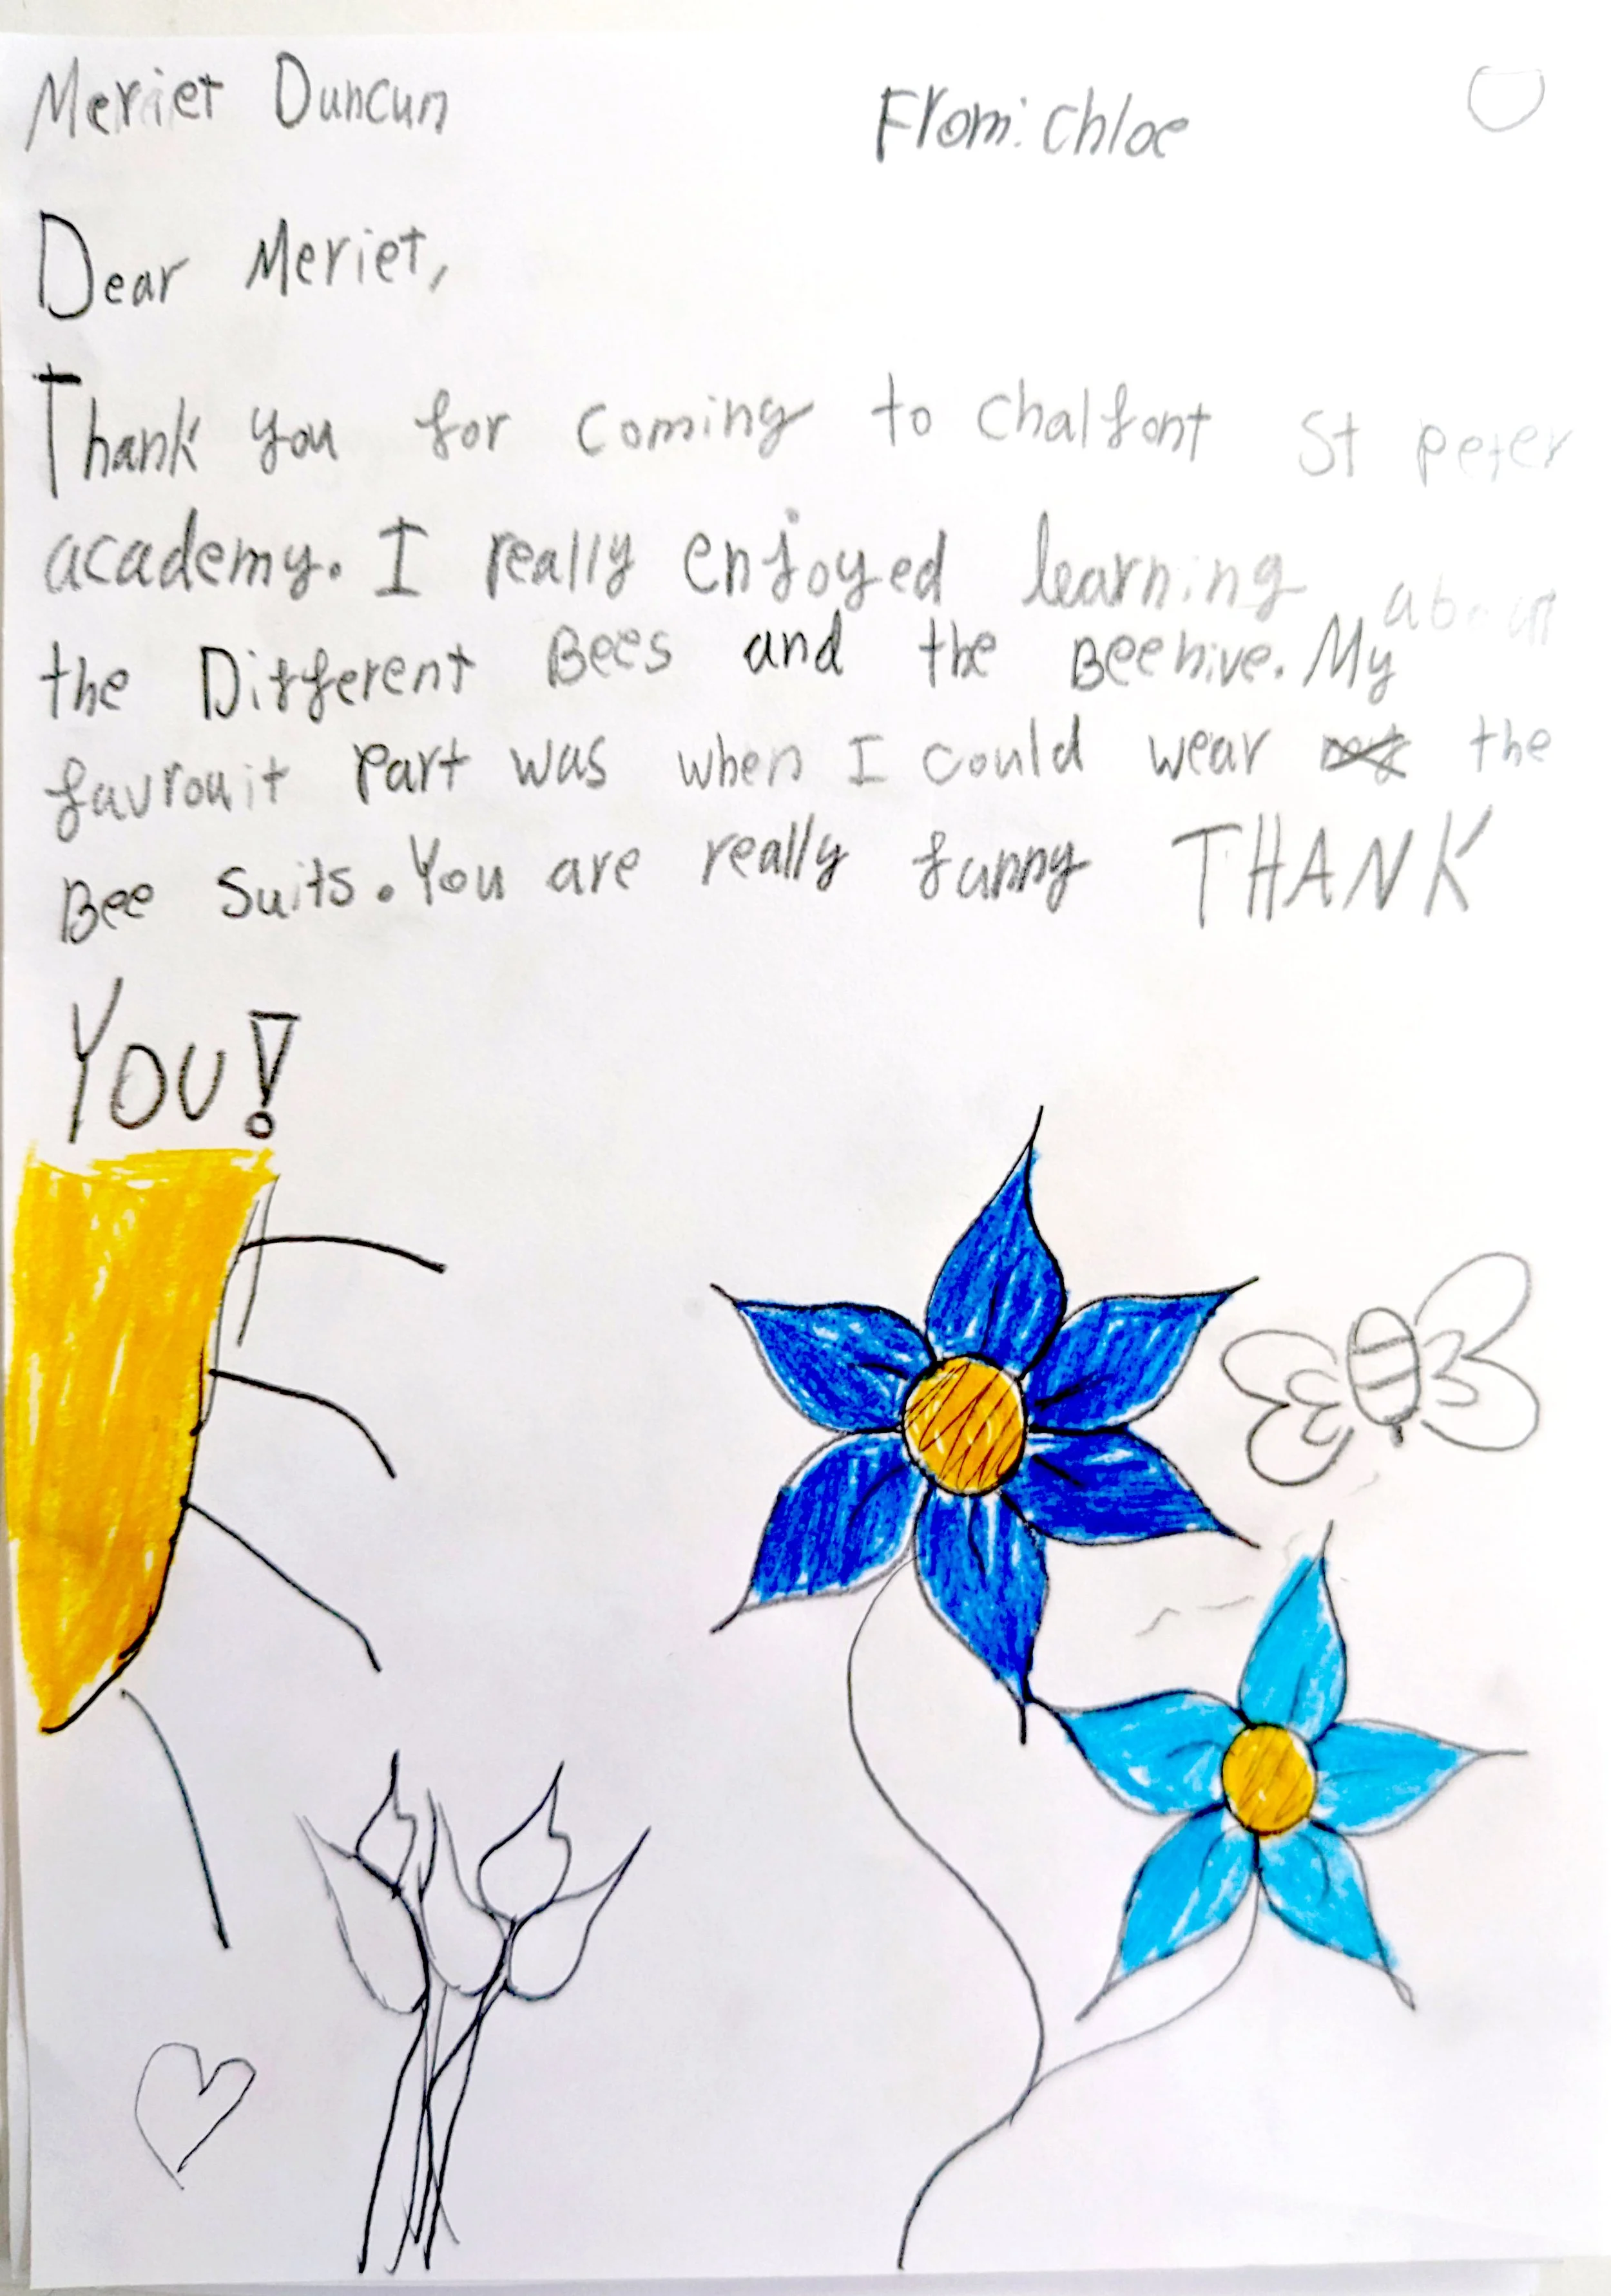 Meriet Duncun
From: Chloe
Dear Meriet,
Thank you for coming to chalfont St peter
academy. I really enjoyed learning about
the Different Bees and the Beehive. My
favrouit part was when I could wear the
Bee suits. You are really funny THANK
YOU!